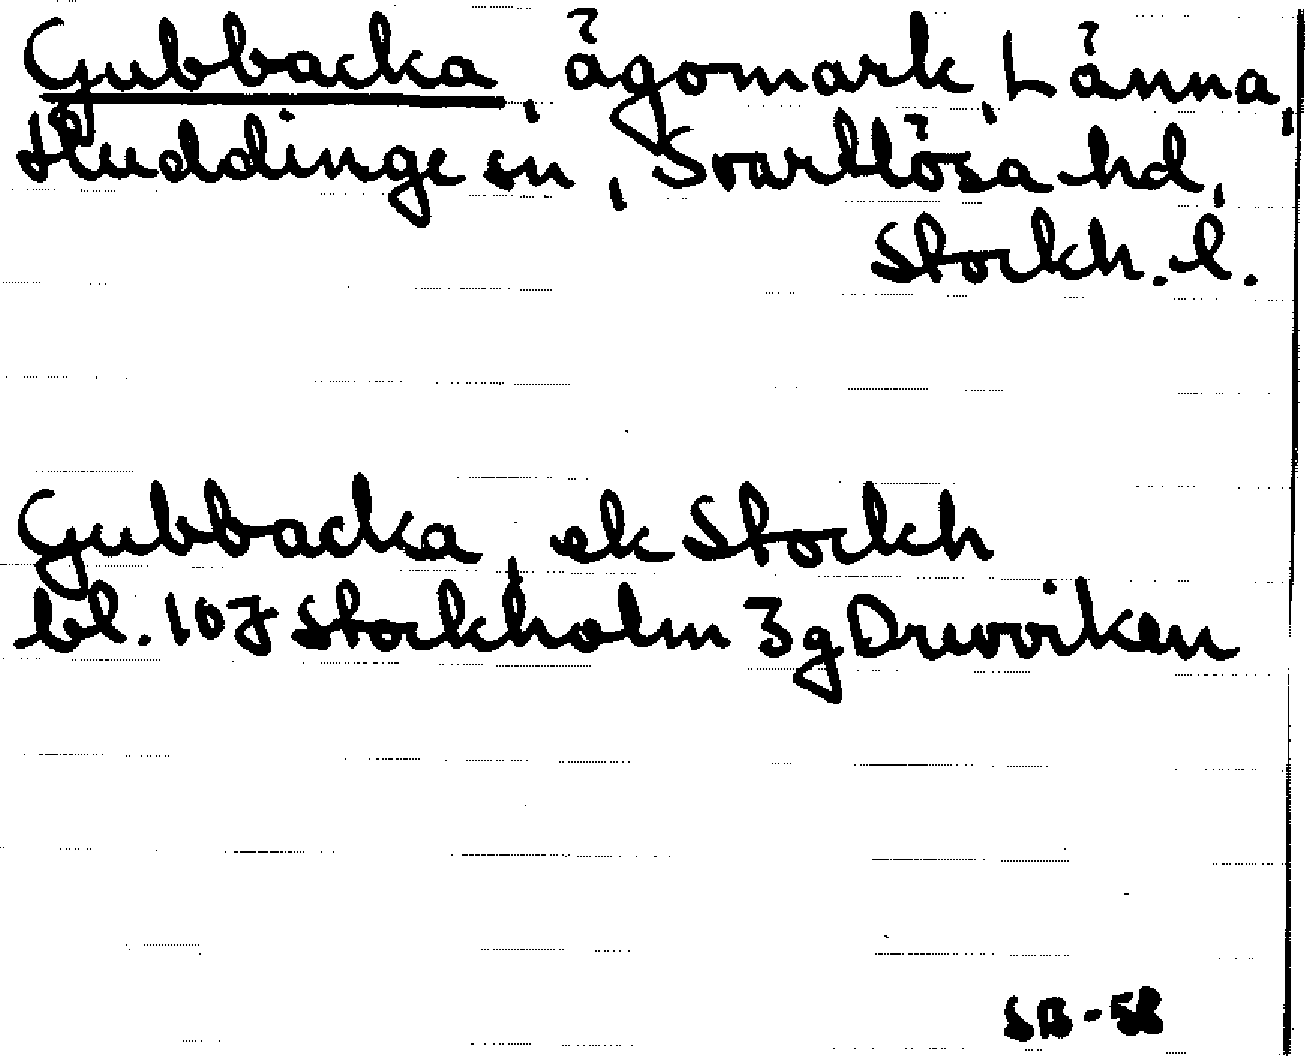 Gubbacka, ägomark, Länna,
Huddinge sn, Svartlösa hd,
Stockh. l.
Gubbacka, ek Stockh
bl. 107 Stockholm 3g Drevviken
SB-58